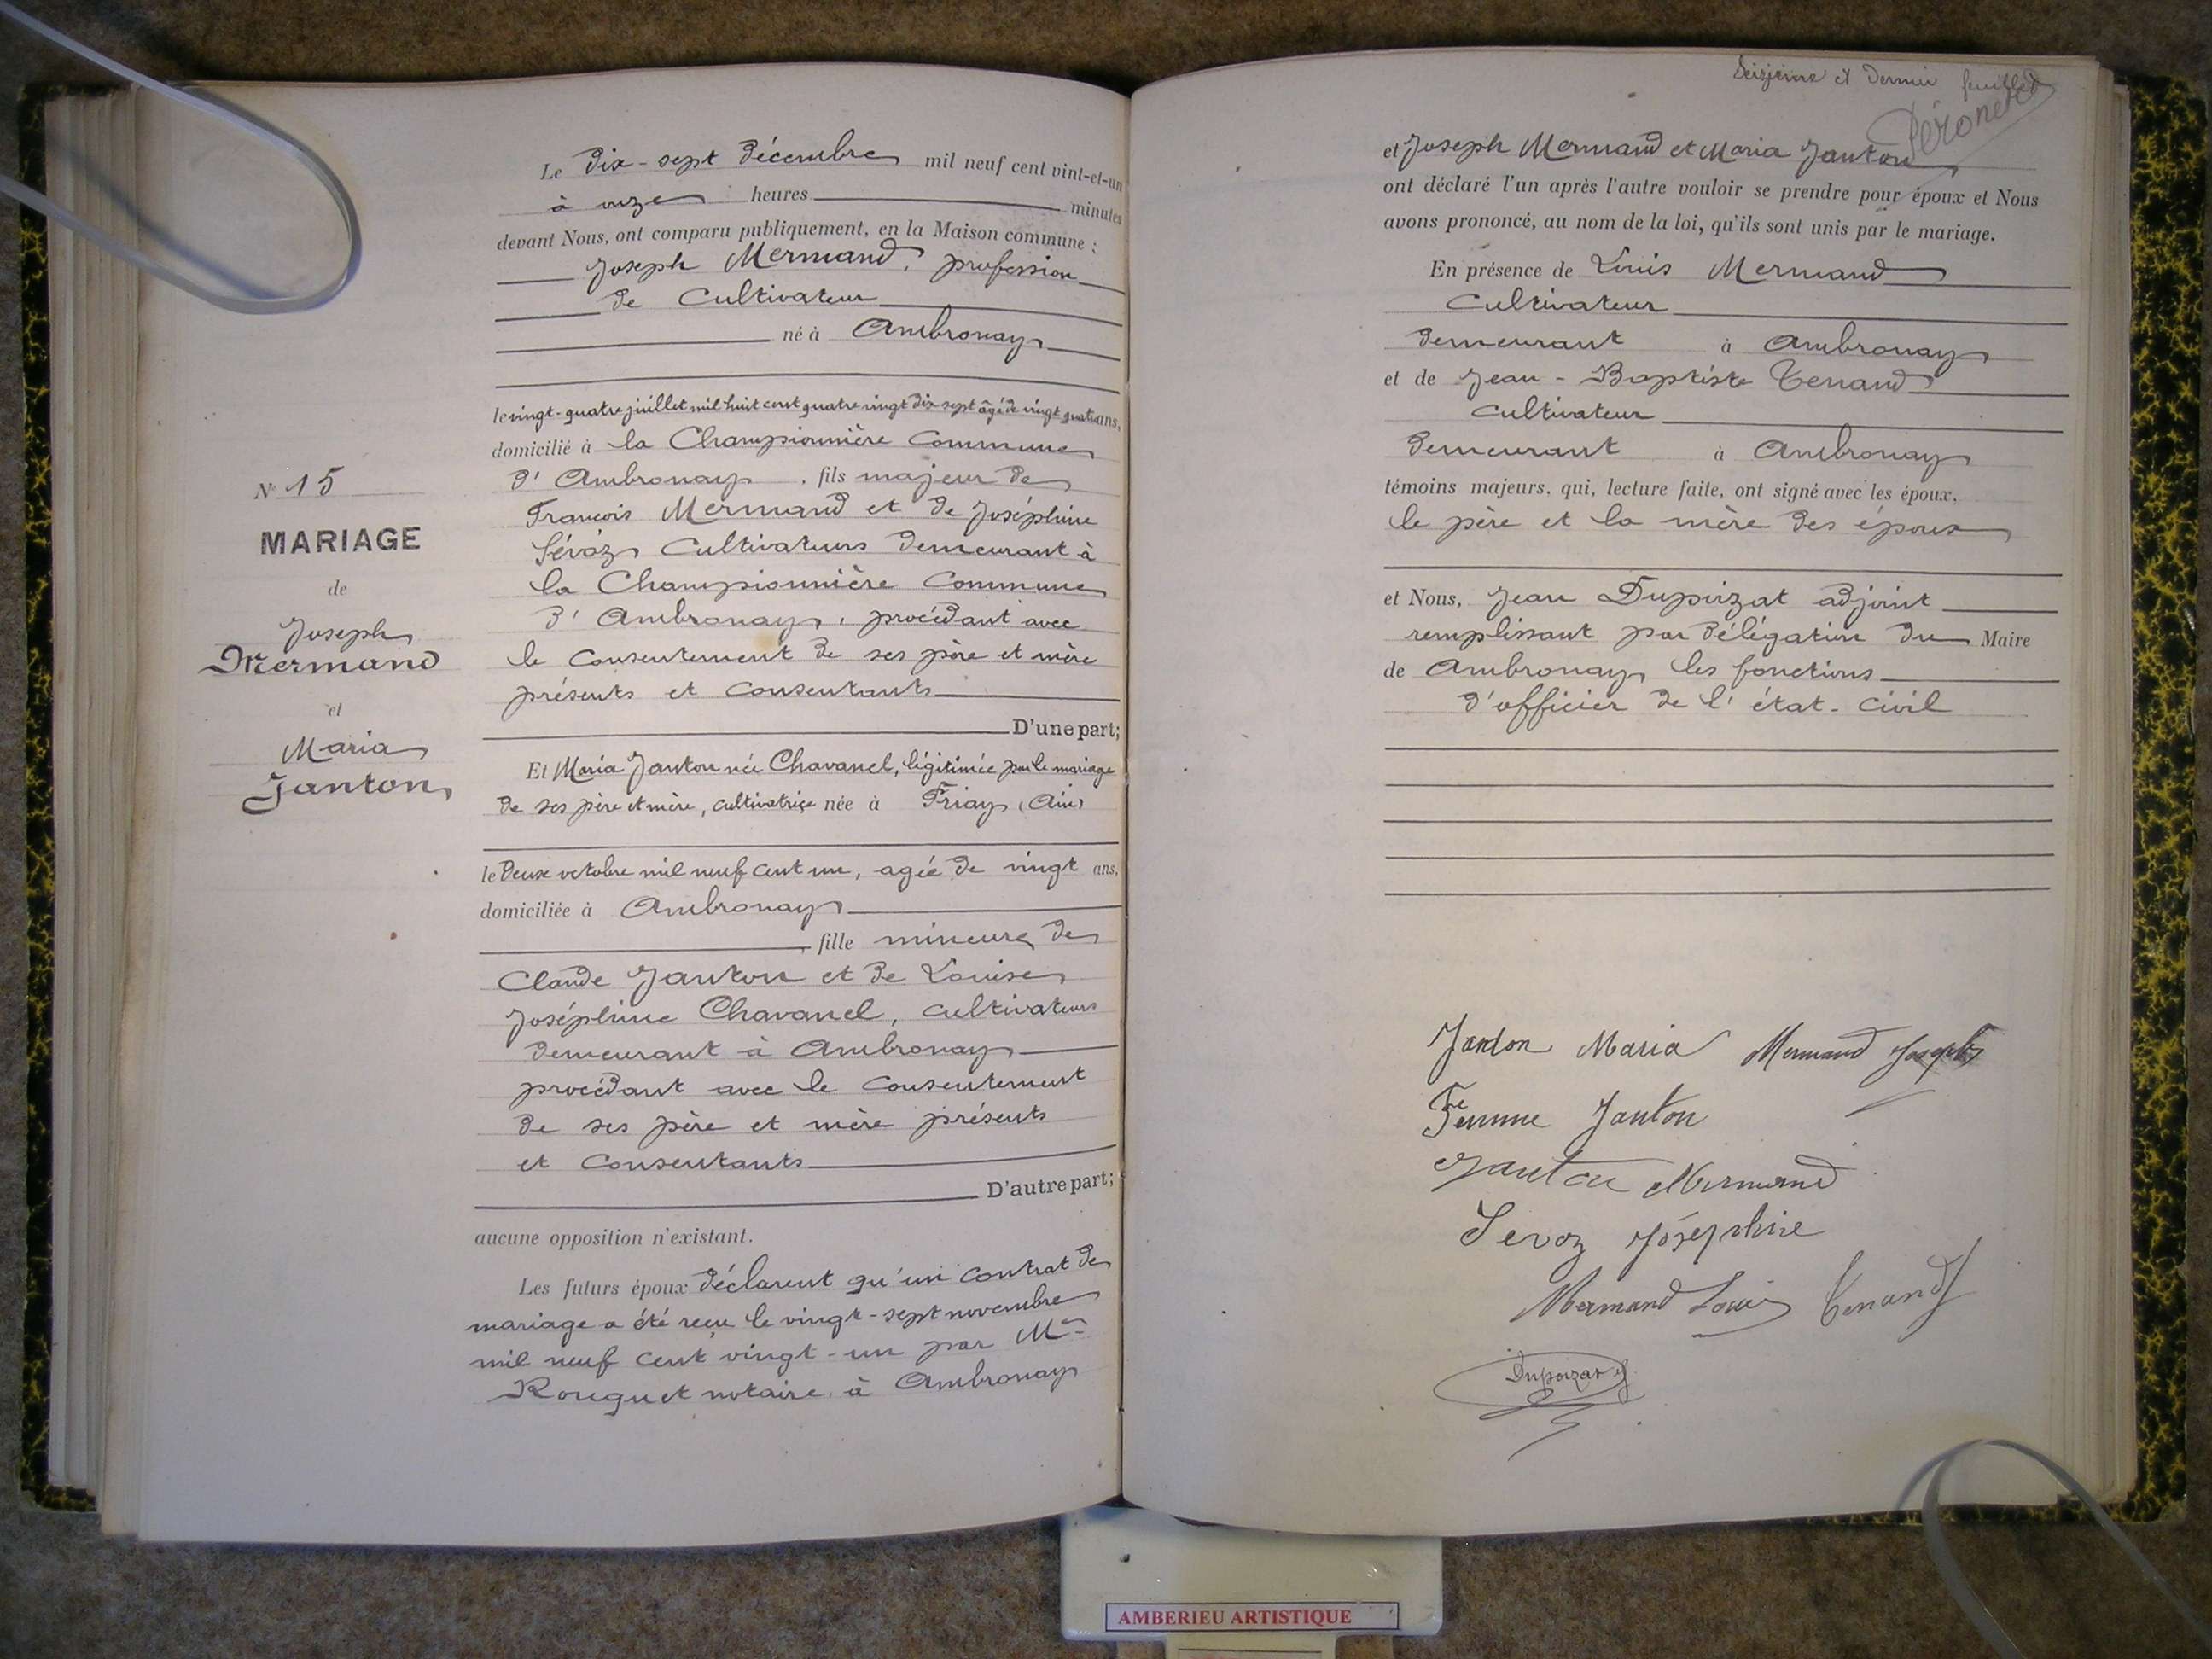 N° 15
MARIAGE
de
Joseph
Mermand
et
Maria
Janton
Le dix-sept décembre mil neuf cent vint-et-un
à onze heures minutes
devant Nous, ont comparu publiquement, en la Maison commune :
Joseph Mermand, profession
de Cultivateur
né à Ambronay
le vingt-quatre juillet mil huit cent quatre vingt dix-sept âgé de vingt quatre ans,
domicilié à la Championnière Commune
d'Ambronay, fils majeur de
François Mermand et de Joséphine
Sévoz Cultivateurs demeurant à
la Championnière Commune
d'Ambronay, procédant avec
le consentement de ses père et mère
présents et consentants
D'une part;
Et Maria Janton née Chavanel, légitimée par le mariage
de ses père et mère, cultivatrice née à Priay (Ain)
le deux octobre mil neuf cent un, agée de vingt ans,
domiciliée à Ambronay
fille mineure de
Claude Janton et de Louise
Joséphine Chavanel, cultivateurs
demeurant à Ambronay
procédant avec le consentement
de ses père et mère présents
et consentants
D'autre part;
aucune opposition n'existant.
Les futurs époux déclarent qu'un contrat de
mariage a été reçu le vingt-sept novembre
mil neuf cent vingt-un par Me
Rouguet notaire à Ambronay
Seizième et dernier feuillet
Péronet
et Joseph Mermand et Maria Janton
ont déclaré l'un après l'autre vouloir se prendre pour époux et Nous
avons prononcé, au nom de la loi, qu'ils sont unis par le mariage.
En présence de Louis Mermand
Cultivateur
demeurant à Ambronay
et de Jean-Baptiste Tenand
cultivateur
demeurant à Ambronay
témoins majeurs, qui, lecture faite, ont signé avec les époux,
le père et la mère des époux
et Nous, Jean Dupoizat adjoint
remplissant par délégation du Maire
de Ambronay les fonctions
d'officier de l'état-civil
Janton Maria Mermand Joseph
Fe Femme Janton
Janton Mermand
Sevoz Joséphine
Mermand Louis Tenand
Dupoizat J
AMBERIEU ARTISTIQUE